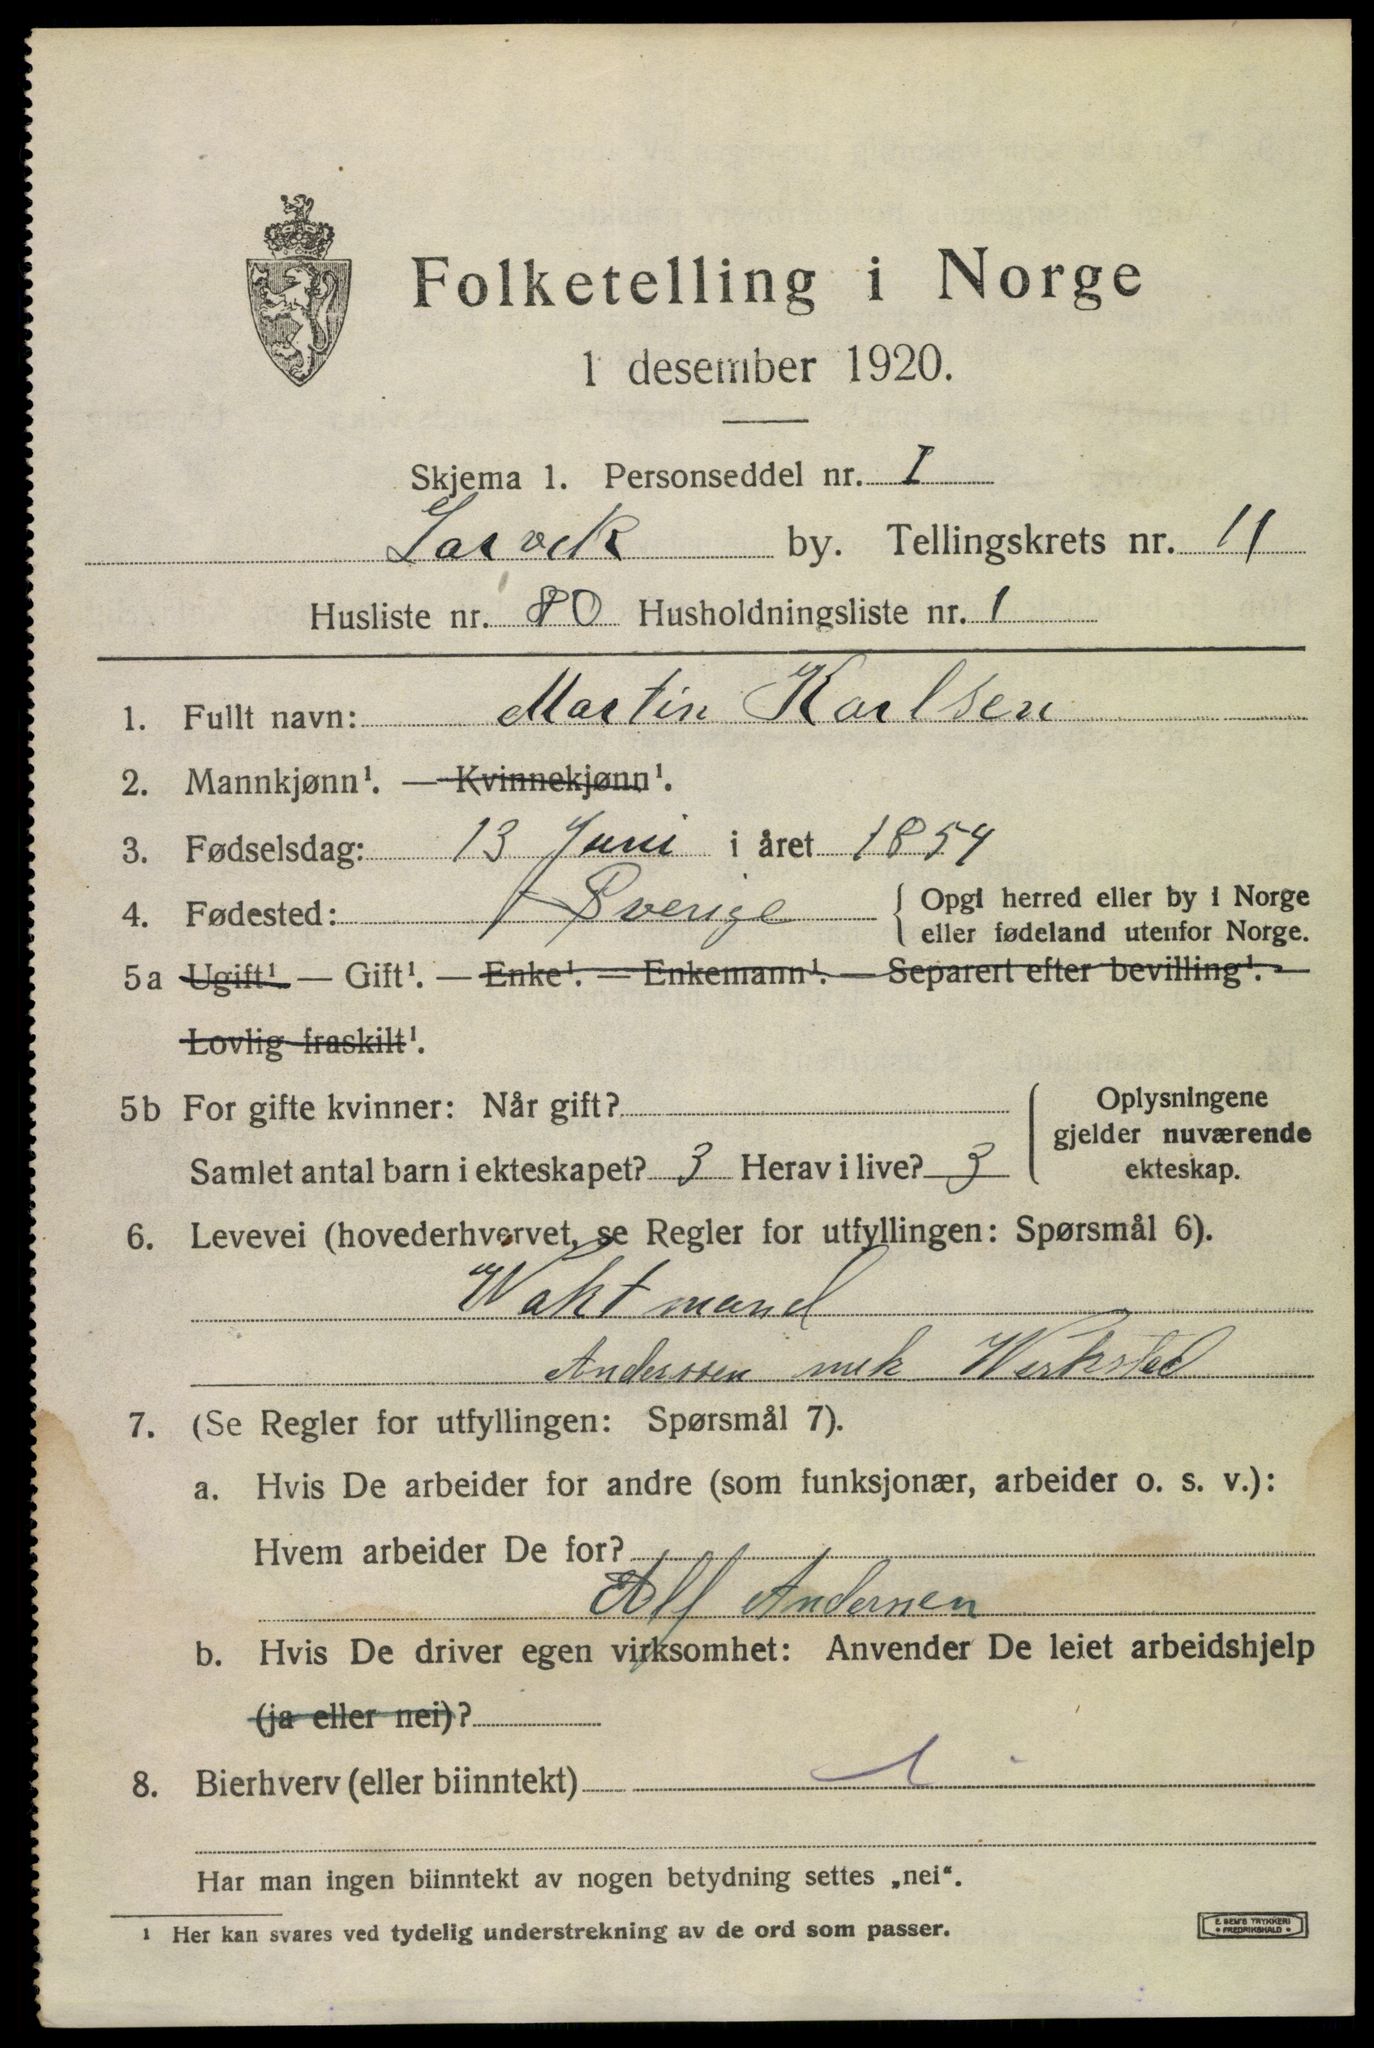 Folketelling i Norge
1 desember 1920.
Skjema 1. Personseddel nr. I
Larvik by. Tellingskrets nr. 11
Husliste nr. 80 Husholdningsliste nr. 1
1. Fullt navn: Martin Karlsen
2. Mannkjønn¹. — Kvinnekjønn¹.
3. Fødselsdag: 13 Juni i året 1854
4. Fødested: Sverige { Opgi herred eller by i Norge
eller fødeland utenfor Norge.
5a Ugift¹. — Gift¹. — Enke¹. — Enkemann¹. — Separert efter bevilling¹. —
Lovlig fraskilt¹.
5b For gifte kvinner: Når gift?
Samlet antal barn i ekteskapet? 3 Herav i live? 3
{ Oplysningene
gjelder nuværende
ekteskap.
6. Levevei (hovederhvervet, se Regler for utfyllingen: Spørsmål 6).
Waktmand
Anderssen mek Verksted
7. (Se Regler for utfyllingen: Spørsmål 7).
a. Hvis De arbeider for andre (som funksjonær, arbeider o. s. v.):
Hvem arbeider De for?
Alf Andersen
b. Hvis De driver egen virksomhet: Anvender De leiet arbeidshjelp
(ja eller nei)?
8. Bierhverv (eller biinntekt)
Har man ingen biinntekt av nogen betydning settes „nei“.
¹ Her kan svares ved tydelig understrekning av de ord som passer.
E SEM'S TRYKKERI
FREDRIKSHALD